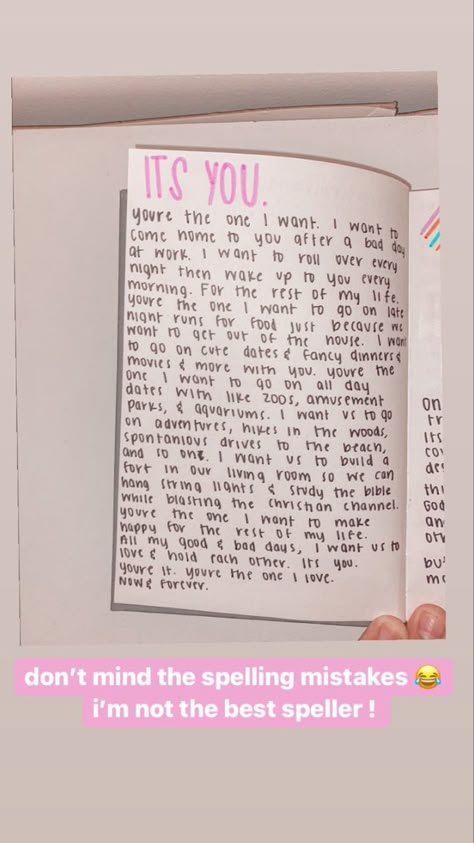 ITS YOU.
youre the one I want. I want to
come home to you after a bad day
at work. I want to roll over every
night then wake up to you every
morning. For the rest of my life.
youre the one I want to go on late
night runs for food just because we
want to get out of the house. I want
to go on cute dates & fancy dinners &
movies & more with you. youre the
one I want to go on all day
dates with like zoos, amusement
parks, & aquariums. I want us to go
on adventures, hikes in the woods,
spontanious drives to the beach,
and so on. I want us to build a
fort in our living room so we can
hang string lights & study the bible
while blasting the christian channel.
youre the one I want to make
happy for the rest of my life.
All my good & bad days, I want us to
love & hold each other. Its you.
youre it. youre the one I love.
Now & forever.
on
tr
its
co
de
thi
God
an
oth
but
mo
don't mind the spelling mistakes 😂
i'm not the best speller !